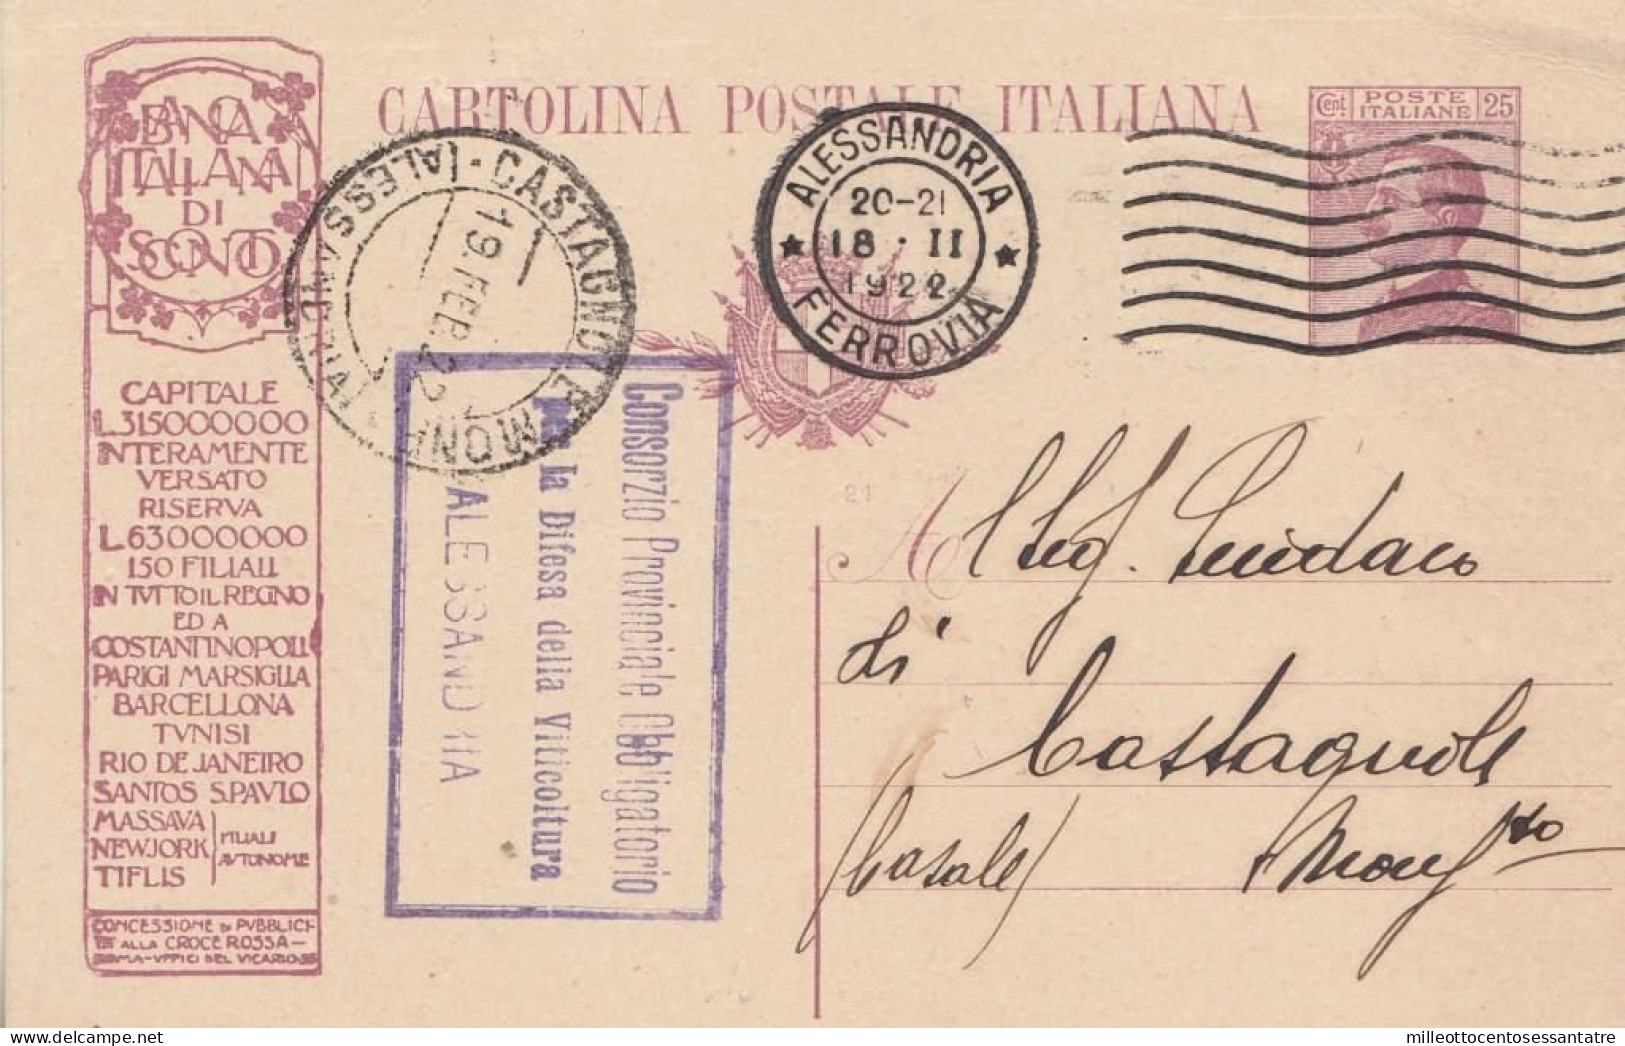 BANCA
ITALIANA
DI
SCONTO
CAPITALE
L.315000000
INTERAMENTE
VERSATO
RISERVA
L.63000000
150 FILIALI
IN TVTTO IL REGNO
ED A
COSTANTINOPOLI
PARIGI MARSIGLIA
BARCELLONA
TVNISI
RIO DE JANEIRO
SANTOS S.PAVLO
MASSAVA
NEW JORK
TIFLIS
FILIALI
AVTONOME
CONCESSIONE DI PVBBLICI-
TÀ ALLA CROCE ROSSA-
ROMA-VFFICI DEL VICARIO
CARTOLINA POSTALE ITALIANA
Cent. POSTE ITALIANE 25
CASTAGNOLE MONF
(ALESSANDRIA)
19.FEB.22
ALESSANDRIA
20-21
18 · II
1922
FERROVIA
Consorzio Provinciale Obbligatorio
per la Difesa della Viticoltura
ALESSANDRIA
21
A Ill Sig. Sindaco
di
Castagnole
(Casale) Monfto
milleottocentosessantatre